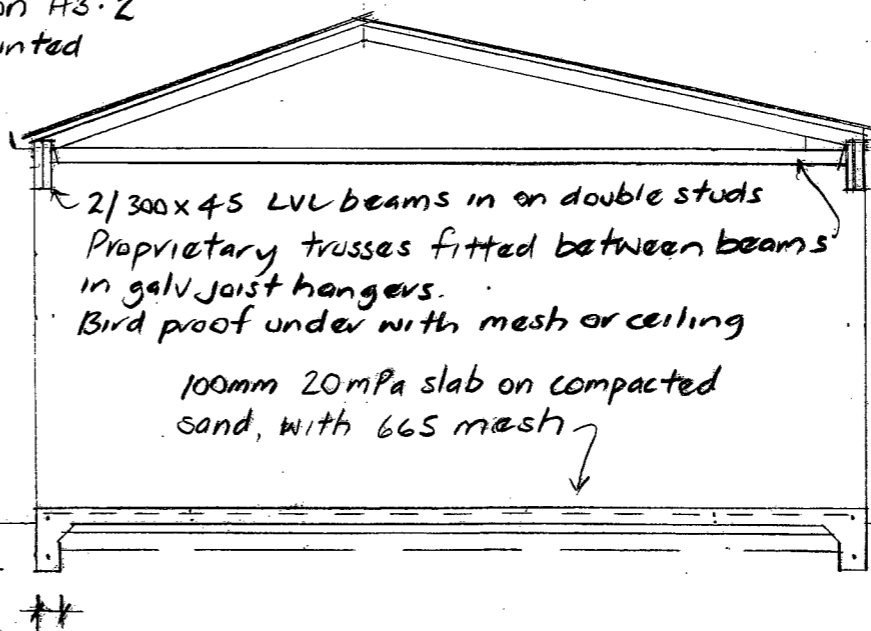 on H3.2
unted
2/300x45 LVL beams in on double studs
Proprietary trusses fitted between beams
in galv joist hangers.
Bird proof under with mesh or ceiling
100mm 20mPa slab on compacted
sand, with 665 mesh